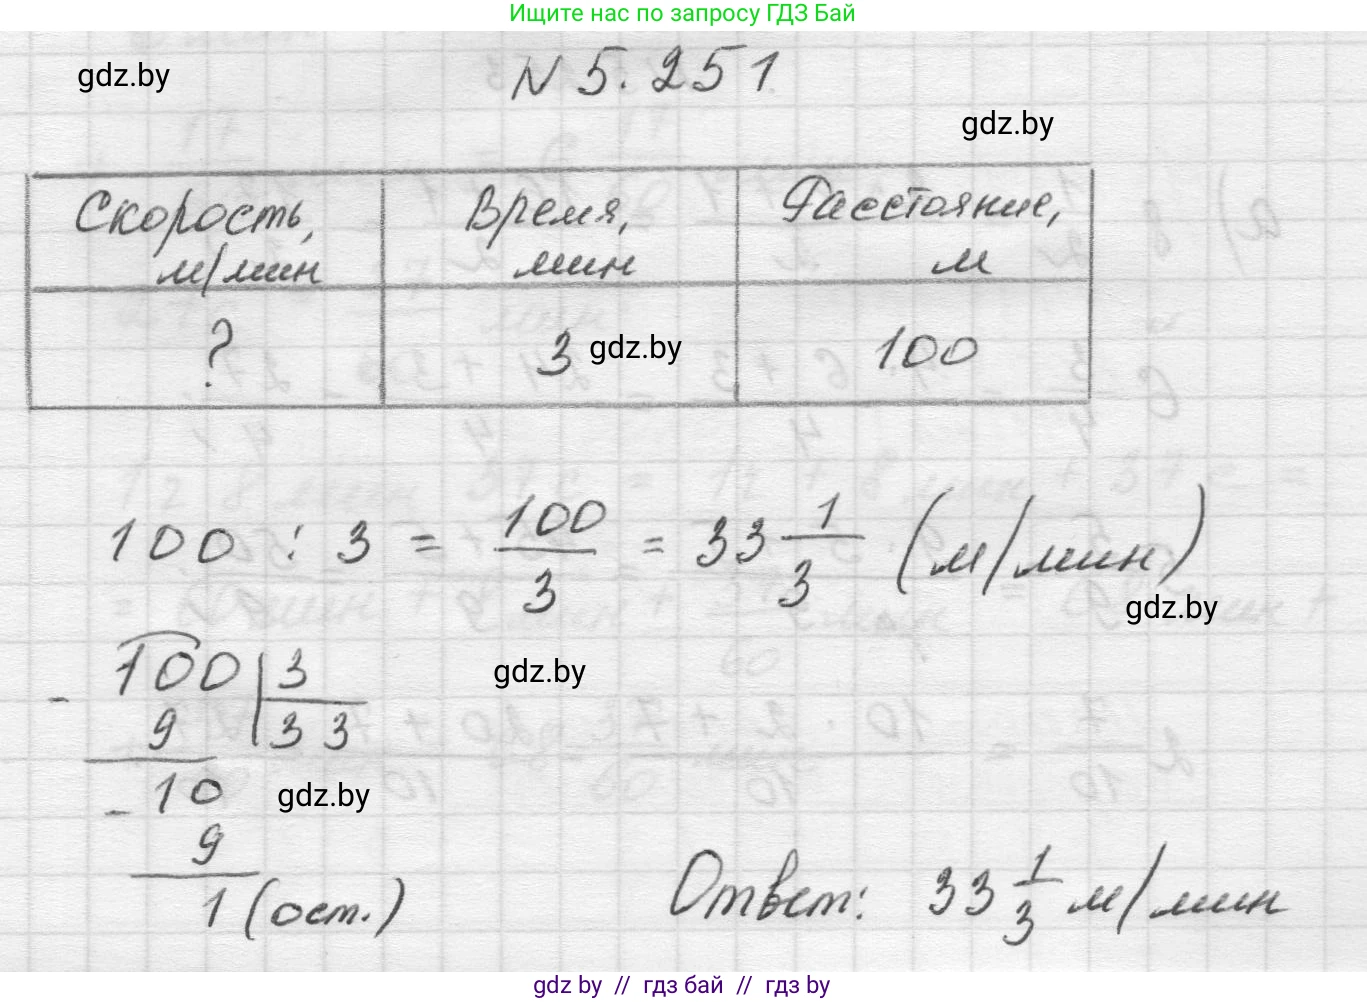 Ищите нас по запросу ГДЗ Бай
gdz.by
N 5.251
gdz.by
Скорость, м/мин | Время, мин | Расстояние, м
? | 3 | 100
gdz.by
100 : 3 = 100/3 = 33 1/3 (м/мин)
gdz.by
- 100 | 3
gdz.by
9 | 33
- 10
gdz.by
9
1 (ост.)
Ответ: 33 1/3 м/мин
gdz.by // гдз бай // гдз by